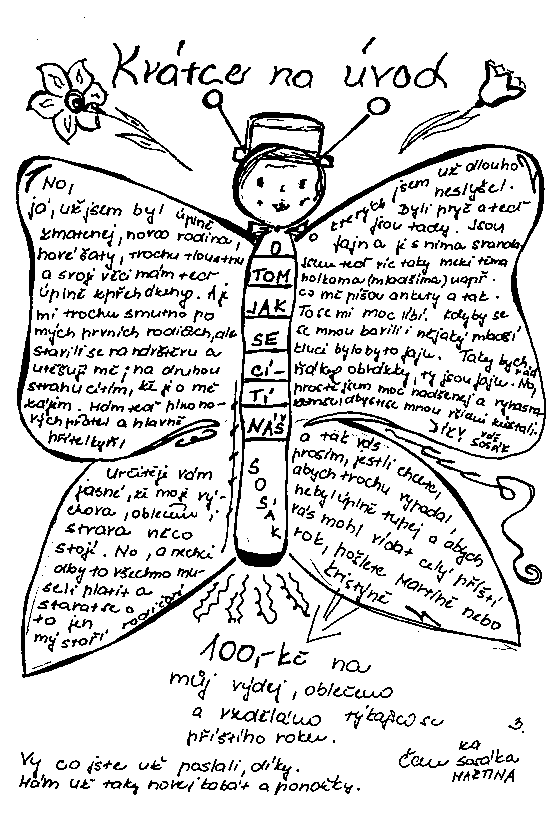 Krátce na úvod
No,
já, už jsem byl úplně
zmatenej, nová rodina,
nové šaty, trochu tloustnu
a svoji věci mám teď
úplně
mi trochu smutno po
mých prvních rodičích, ale
starali se na
utěšuj mě, na druhou
stranu cítím, že je o mě
zájem. Mám teď plno no-
vých přátel a hlavně
přítelkyň,
O
TOM
JAK
SE
CÍ-
TÍ
NÁŠ
S
O
S
Á
K
o kterých jsem už dlouho
neslyšel.
Byli pryč a teď
jsou tady. Jsou
fajn a je s nima sranda
jsem teď víc taky mezi těma
holkama (mladšíma) např.
co mě píšou ankety a tak.
To se mi moc líbí. Kdyby se
se mnou bavili i nějaký mladší
kluci bylo by to fajn. Taky bych rád
obrázky, ty jsou fajn. No,
prostě jsem moc nadšenej a
abyste se mnou všichni zůstali.
DÍKY VÁŠ
SOSÁK
Určitěji vám
jasné, že moje vý-
chova, oblečení,
strava něco
stojí. No, a nechci
aby to všechno mu-
seli platit a
starat se o
to jen
mý starý rodičové
a tak vás
prosím, jestli chcete,
abych trochu vypadal,
nebyl úplně tupej a abych
vás mohl vídat celý příští
rok, pošlete Martině nebo
Kristýně
100,-Kč na
můj výdej, oblečení
a vzdělání týkající se
příštího roku.
3.
Vy co jste už poslali, díky.
Mám už taky novej kabát a ponožky.
Čau
za
Sosáka
MARTINA